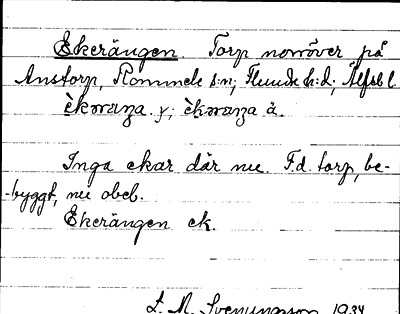 Ekerängen. Torp norröver på
Anstorp, Rommele s:n; Flundr h:d; Älfsb l.
y; å.
Inga ekar där nu. F.d. torp, be-
-byggt, nu obeb.
Ekerängen ek.
L. M. Svenungsson 1934